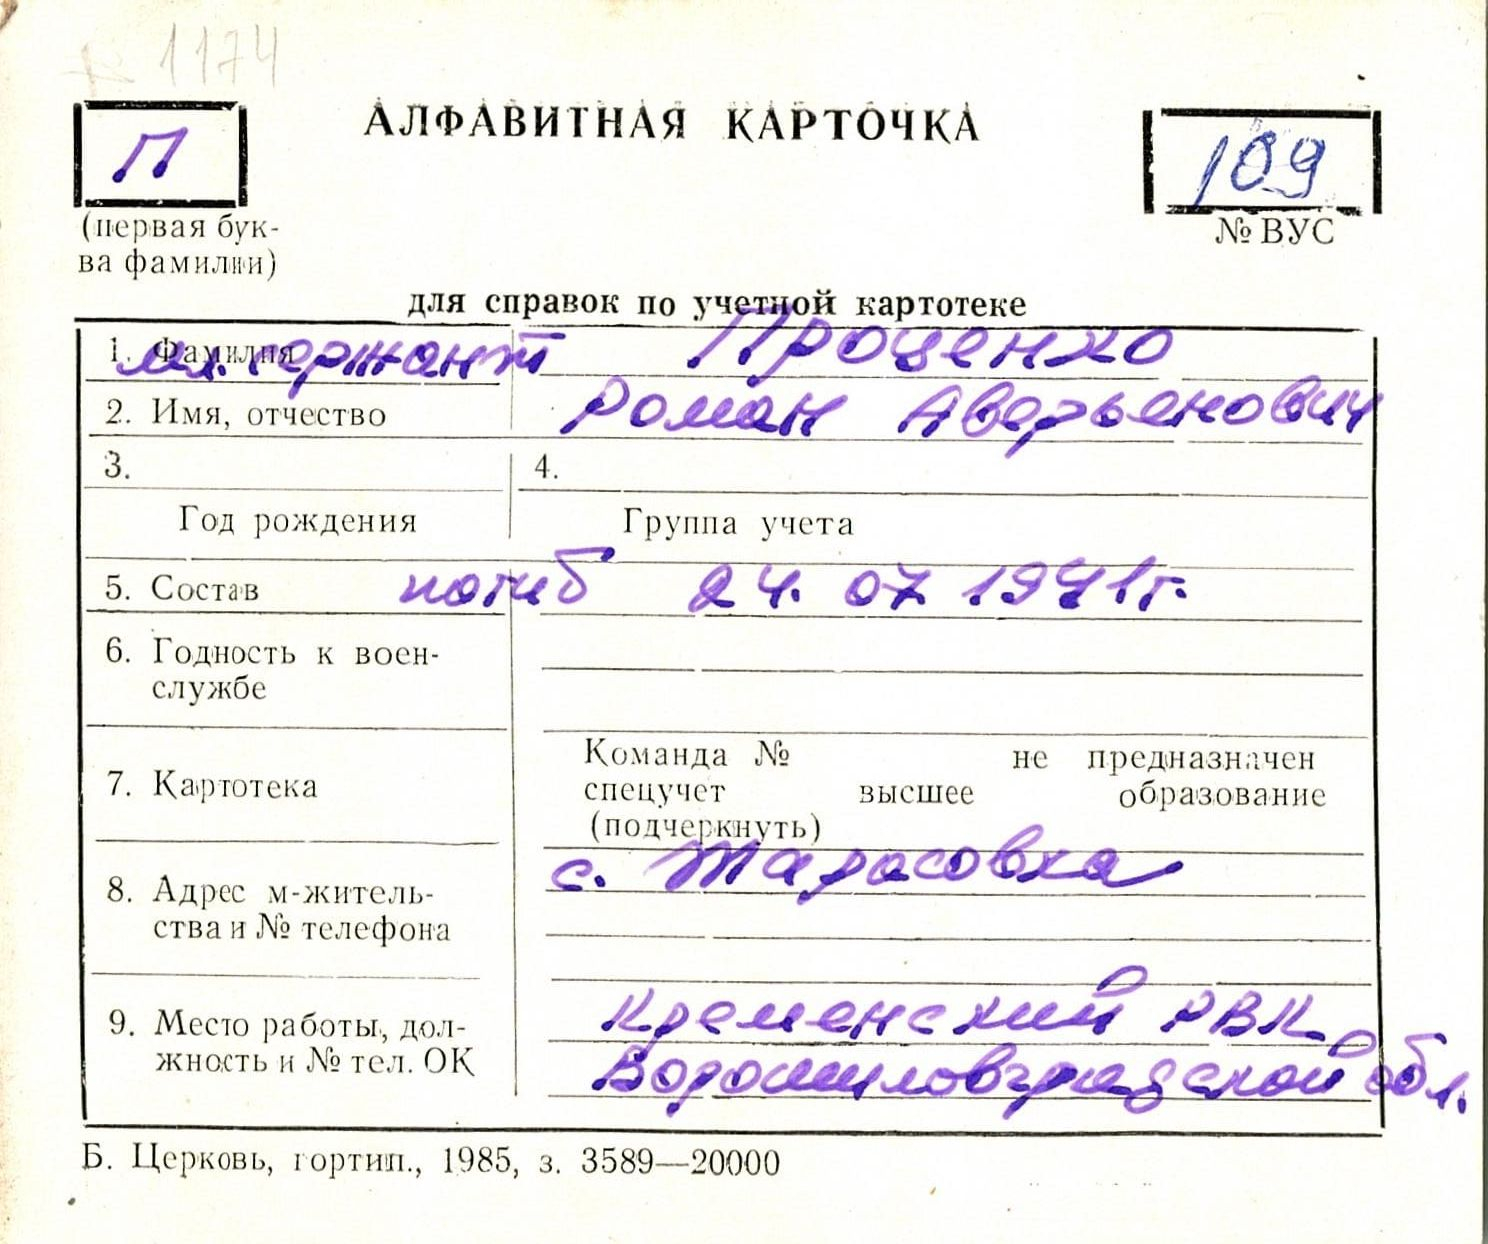 1174
П
АЛФАВИТНАЯ КАРТОЧКА
109
(первая бук-
ва фамилии)
№ ВУС
для справок по учетной картотеке
1. Фамилия
мл. сержант Проценко
2. Имя, отчество Роман Аверьенович
3. 4.
Год рождения Группа учета
5. Состав погиб 24. 07 1941г.
6. Годность к воен-
службе
Команда № не предназначен
7. Картотека спецучет высшее образование
(подчеркнуть)
с. Тарасовка
8. Адрес м-житель-
ства и № телефона
Кременский РВК
9. Место работы, дол-
жность и № тел. ОК Ворошиловградской обл.
Б. Церковь, гортип., 1985, з. 3589—20000